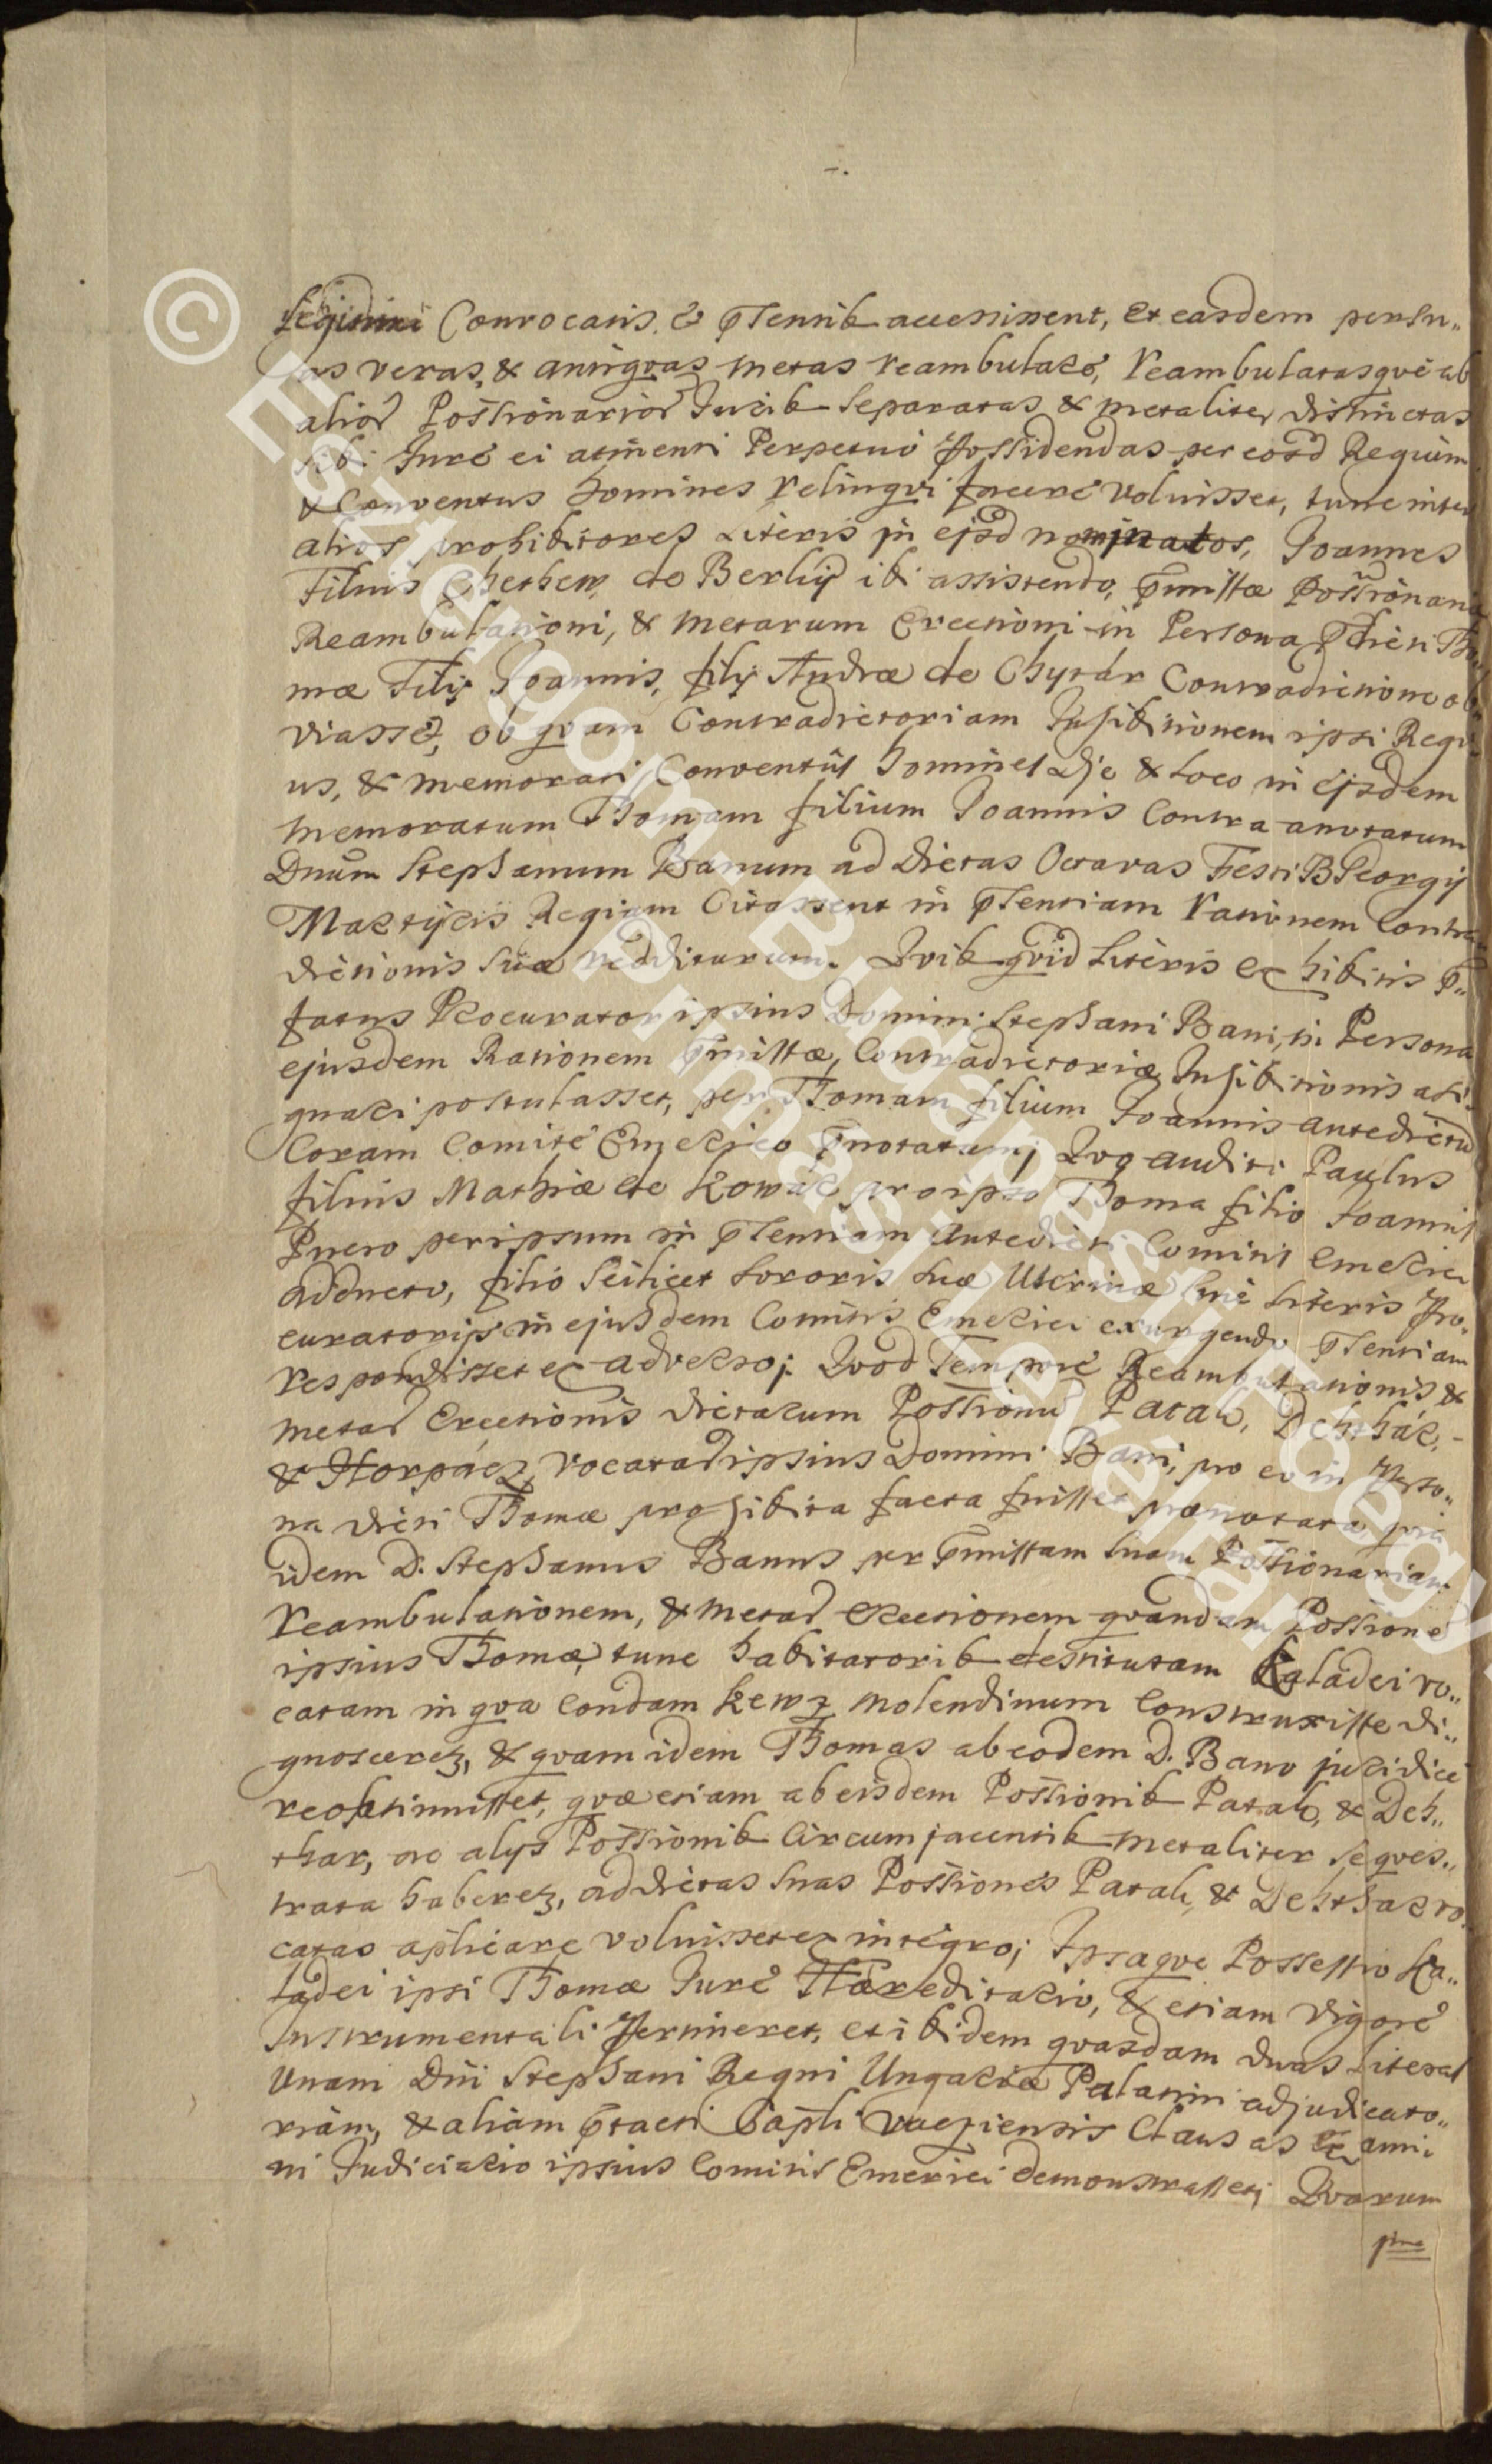 Legitimis Convocatis & p̄sentib accessissent, et easdem per su„
as veras, & antiqvas metas reambulare, reambulatasqve ab
aliorꝰ Poss̄ionariorꝰ Jurib separatas & metaliter distinctas
sibi Jure ei attinenti Perpetuo possidendas per eosd Regium
& Conventus homines relinqvi facere voluisset, tunc inter
alios prohibitores Literis in ejsd nominatos, Joannes
Filius Chethew de Berkij ibi assistendo, p̄missæ Poss̄ionariæ
Reambulationi, & metarum Erectioni in Persona p̄dicti Tho
mæ Filij Joannis, filij Andræ de Chytár Contradictione ob
viasset, ob qvam Contradictoriam Inhibitionem ipsi Regi
us, & memorati Conventûs homines die & loco in ejsdem
memoratum Thomam filium Joannis Contra anotatum
Dnūm Stephanum Banum ad dictas Octavas Festi B Georgij
Martyris Regiam Citassent in p̄sentiam rationem Contra
dictionis suæ redditurum. Qvib qvid Literis exhibitis p̄„
fatus Procurator ipsius Domini Stephani Bani, in Persona
ejusdem Rationem p̄missæ, Contradictoriæ Inhibitionis assi
gnari postulasset, per Thomam filium Joannis antedictū
Coram Comite Emerico p̄notatum; Qvo audito Paulus
filius Mathiæ de Kowár pro ipso Thoma filio Joannis
Puero per ipsum in p̄sentiam antedicti Comitis Emerici
adducto, filio scilicet sororis suæ Uterinæ sine Literis Pro„
curatorijs in ejusdem Comitis Emerici exurgendo p̄sentiam
respondisset ex adverso; Qvod Tempore Reambulationis &
metarꝰ Erectionis dictarum Poss̄ionū Patak, Dehthár,
& Horpácz, vocatarꝰ ipsius Domini Bani, pro eo in Perso„
na dicti Thomæ prohibita facta fuisset prænotata, qvia
idem D. Stephanus Banus per p̄missam suam Poss̄ionariam
Reambulationem, & metarꝰ erectionem qvandam Poss̄ionē
ipsius Thomæ, tunc habitatorib destitutam Kaladei vo„
catam in qva condam Kewz molendinum construxisse di„
gnoscerez, & qvam idem Thomas ab eodem D. Bano juridice
reobtinuisset, qvæ etiam ab eisdem Poss̄ionib Patak, & Deh„
thar, ac alys Poss̄ionib Circumjacentib metaliter seqves„
trata haberez, ad dictas suas Poss̄iones Patak, & Dehthar vo
catas aplicare voluisset ex integro; Ipsaqve Possessio Ka„
ladei ipsi Thomæ Jure Hæreditario, & etiam vigore
Instrumentali pertineret, et ibidem qvasdam duas Literas
Unam Dñi Stephani Regni Ungariæ Palatini adjudicato„
riam, & aliam p̄tacti Capli Vacziensis Clausas Exami
ni Judiciario ipsius Comitis Emerici demonstrasset; Qvarum
pma
© Esztergom-Budapesti Főegy
Prímási Levéltár